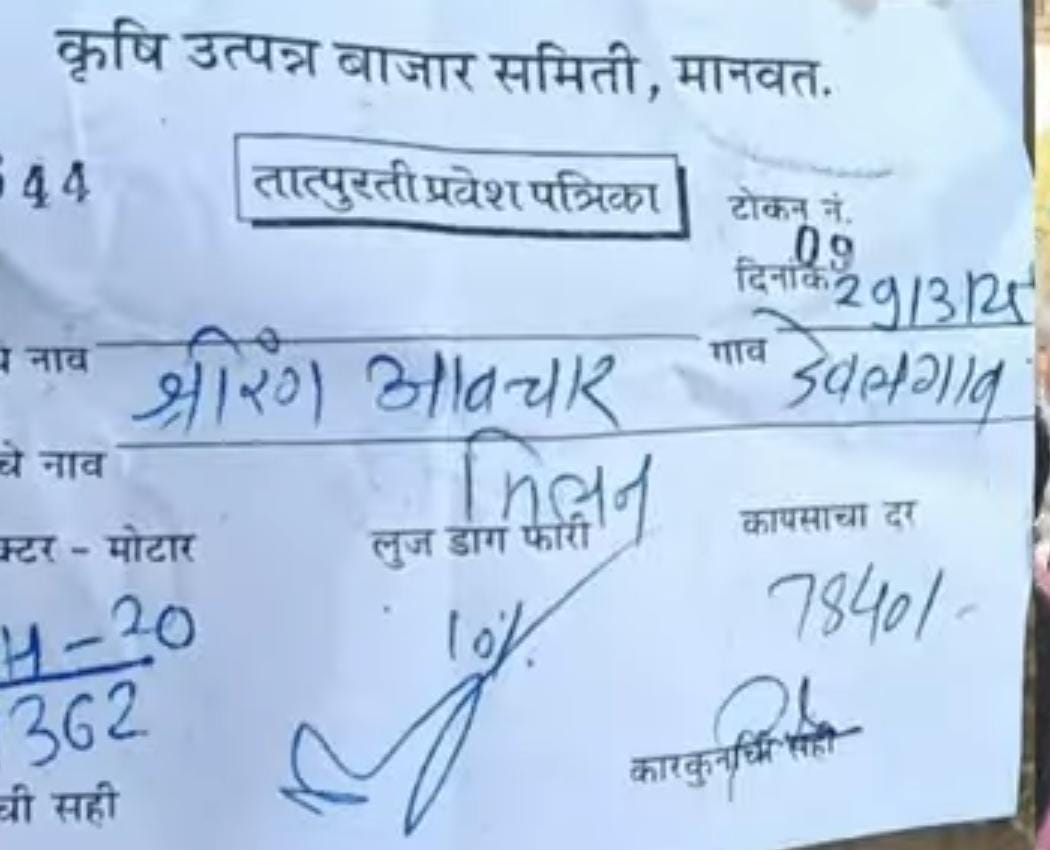 कृषि उत्पन्न बाजार समिती, मानवत.
44
तात्पुरती प्रवेश पत्रिका
टोकन नं.
09
दिनांक 29/3/25
नाव श्रीरंग आवचार गाव देवलगाव
चे नाव मिलन
क्टर - मोटार लुज डाग फारी कापसाचा दर
H-20 10%. 7840/-
362
कारकुनाची सही
ची सही